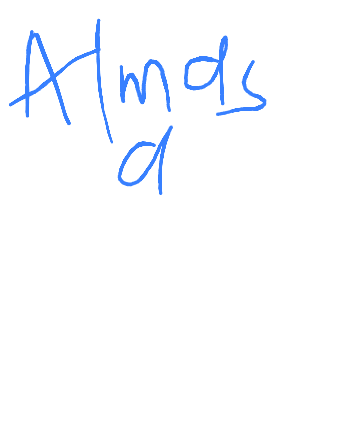 Almds
a